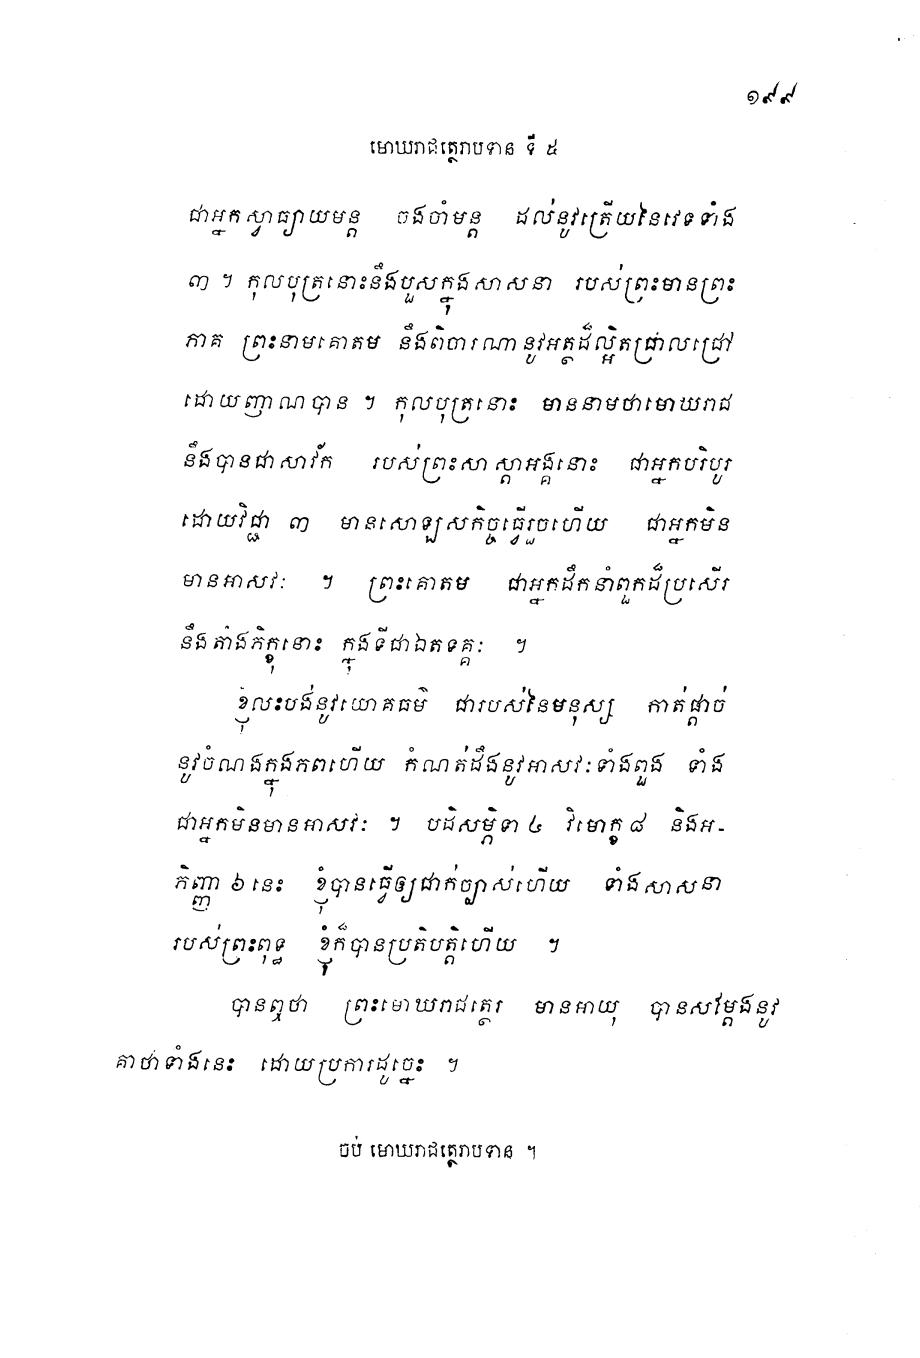 ១៩៩
មោឃរាជត្ថេរាបទាន ទី ៥
ជាអ្នកស្វាធ្យាយមន្ត ចងចាំមន្ត ដល់នូវត្រើយនៃវេទទាំង
៣ ។ កុលបុត្រនោះនឹងបួសក្នុងសាសនា របស់ព្រះមានព្រះ
ភាគ ព្រះនាមគោតម នឹងពិចារណានូវអត្ថដ៏ល្អិតជ្រាលជ្រៅ
ដោយញាណបាន ។ កុលបុត្រនោះ មាននាមថាមោឃរាជ
នឹងបានជាសាវ័ក របស់ព្រះសាស្តាអង្គនោះ ជាអ្នកបរិបូរ
ដោយវិជ្ជា ៣ មានសោឡសកិច្ចធ្វើរួចហើយ ជាអ្នកមិន
មានអាសវៈ ។ ព្រះគោតម ជាអ្នកដឹកនាំពួកដ៏ប្រសើរ
នឹងតាំងភិក្ខុនោះ ក្នុងទីជាឯតទគ្គៈ ។
ខ្ញុំលះបង់នូវយោគធម៌ ជារបស់នៃមនុស្ស កាត់ផ្តាច់
នូវចំណងក្នុងភពហើយ កំណត់ដឹងនូវអាសវៈទាំងពួង ទាំង
ជាអ្នកមិនមានអាសវៈ ។ បដិសម្ភិទា ៤ វិមោក្ខ ៨ និងអ-
ភិញ្ញា ៦ នេះ ខ្ញុំបានធ្វើឲ្យជាក់ច្បាស់ហើយ ទាំងសាសនា
របស់ព្រះពុទ្ធ ខ្ញុំក៏បានប្រតិបត្តិហើយ ។
បានឮថា ព្រះមោឃរាជត្ថេរ មានអាយុ បានសម្តែងនូវ
គាថាទាំងនេះ ដោយប្រការដូច្នេះ ។
ចប់ មោឃរាជត្ថេរាបទាន ។